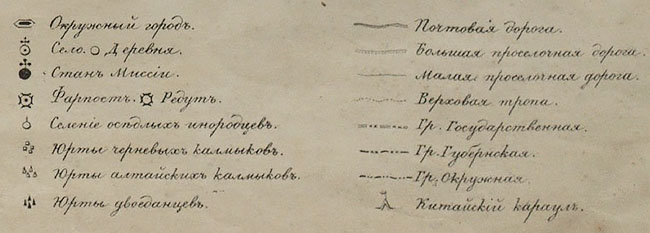 Окружный городъ.
Село. Деревня.
Станъ Миссіи.
Фарпостъ. Редутъ.
Селеніе осѣдлыхъ инородцевъ.
Юрты черневыхъ калмыковъ.
Юрты алтайскихъ калмыковъ.
Юрты двоеданцевъ.
Почтовая дорога.
Большая проселочная дорога.
Малая проселочная дорога.
Верховая тропа.
Гр. Государственная.
Гр. Губернская.
Гр. Окружная
Китайскій караулъ.